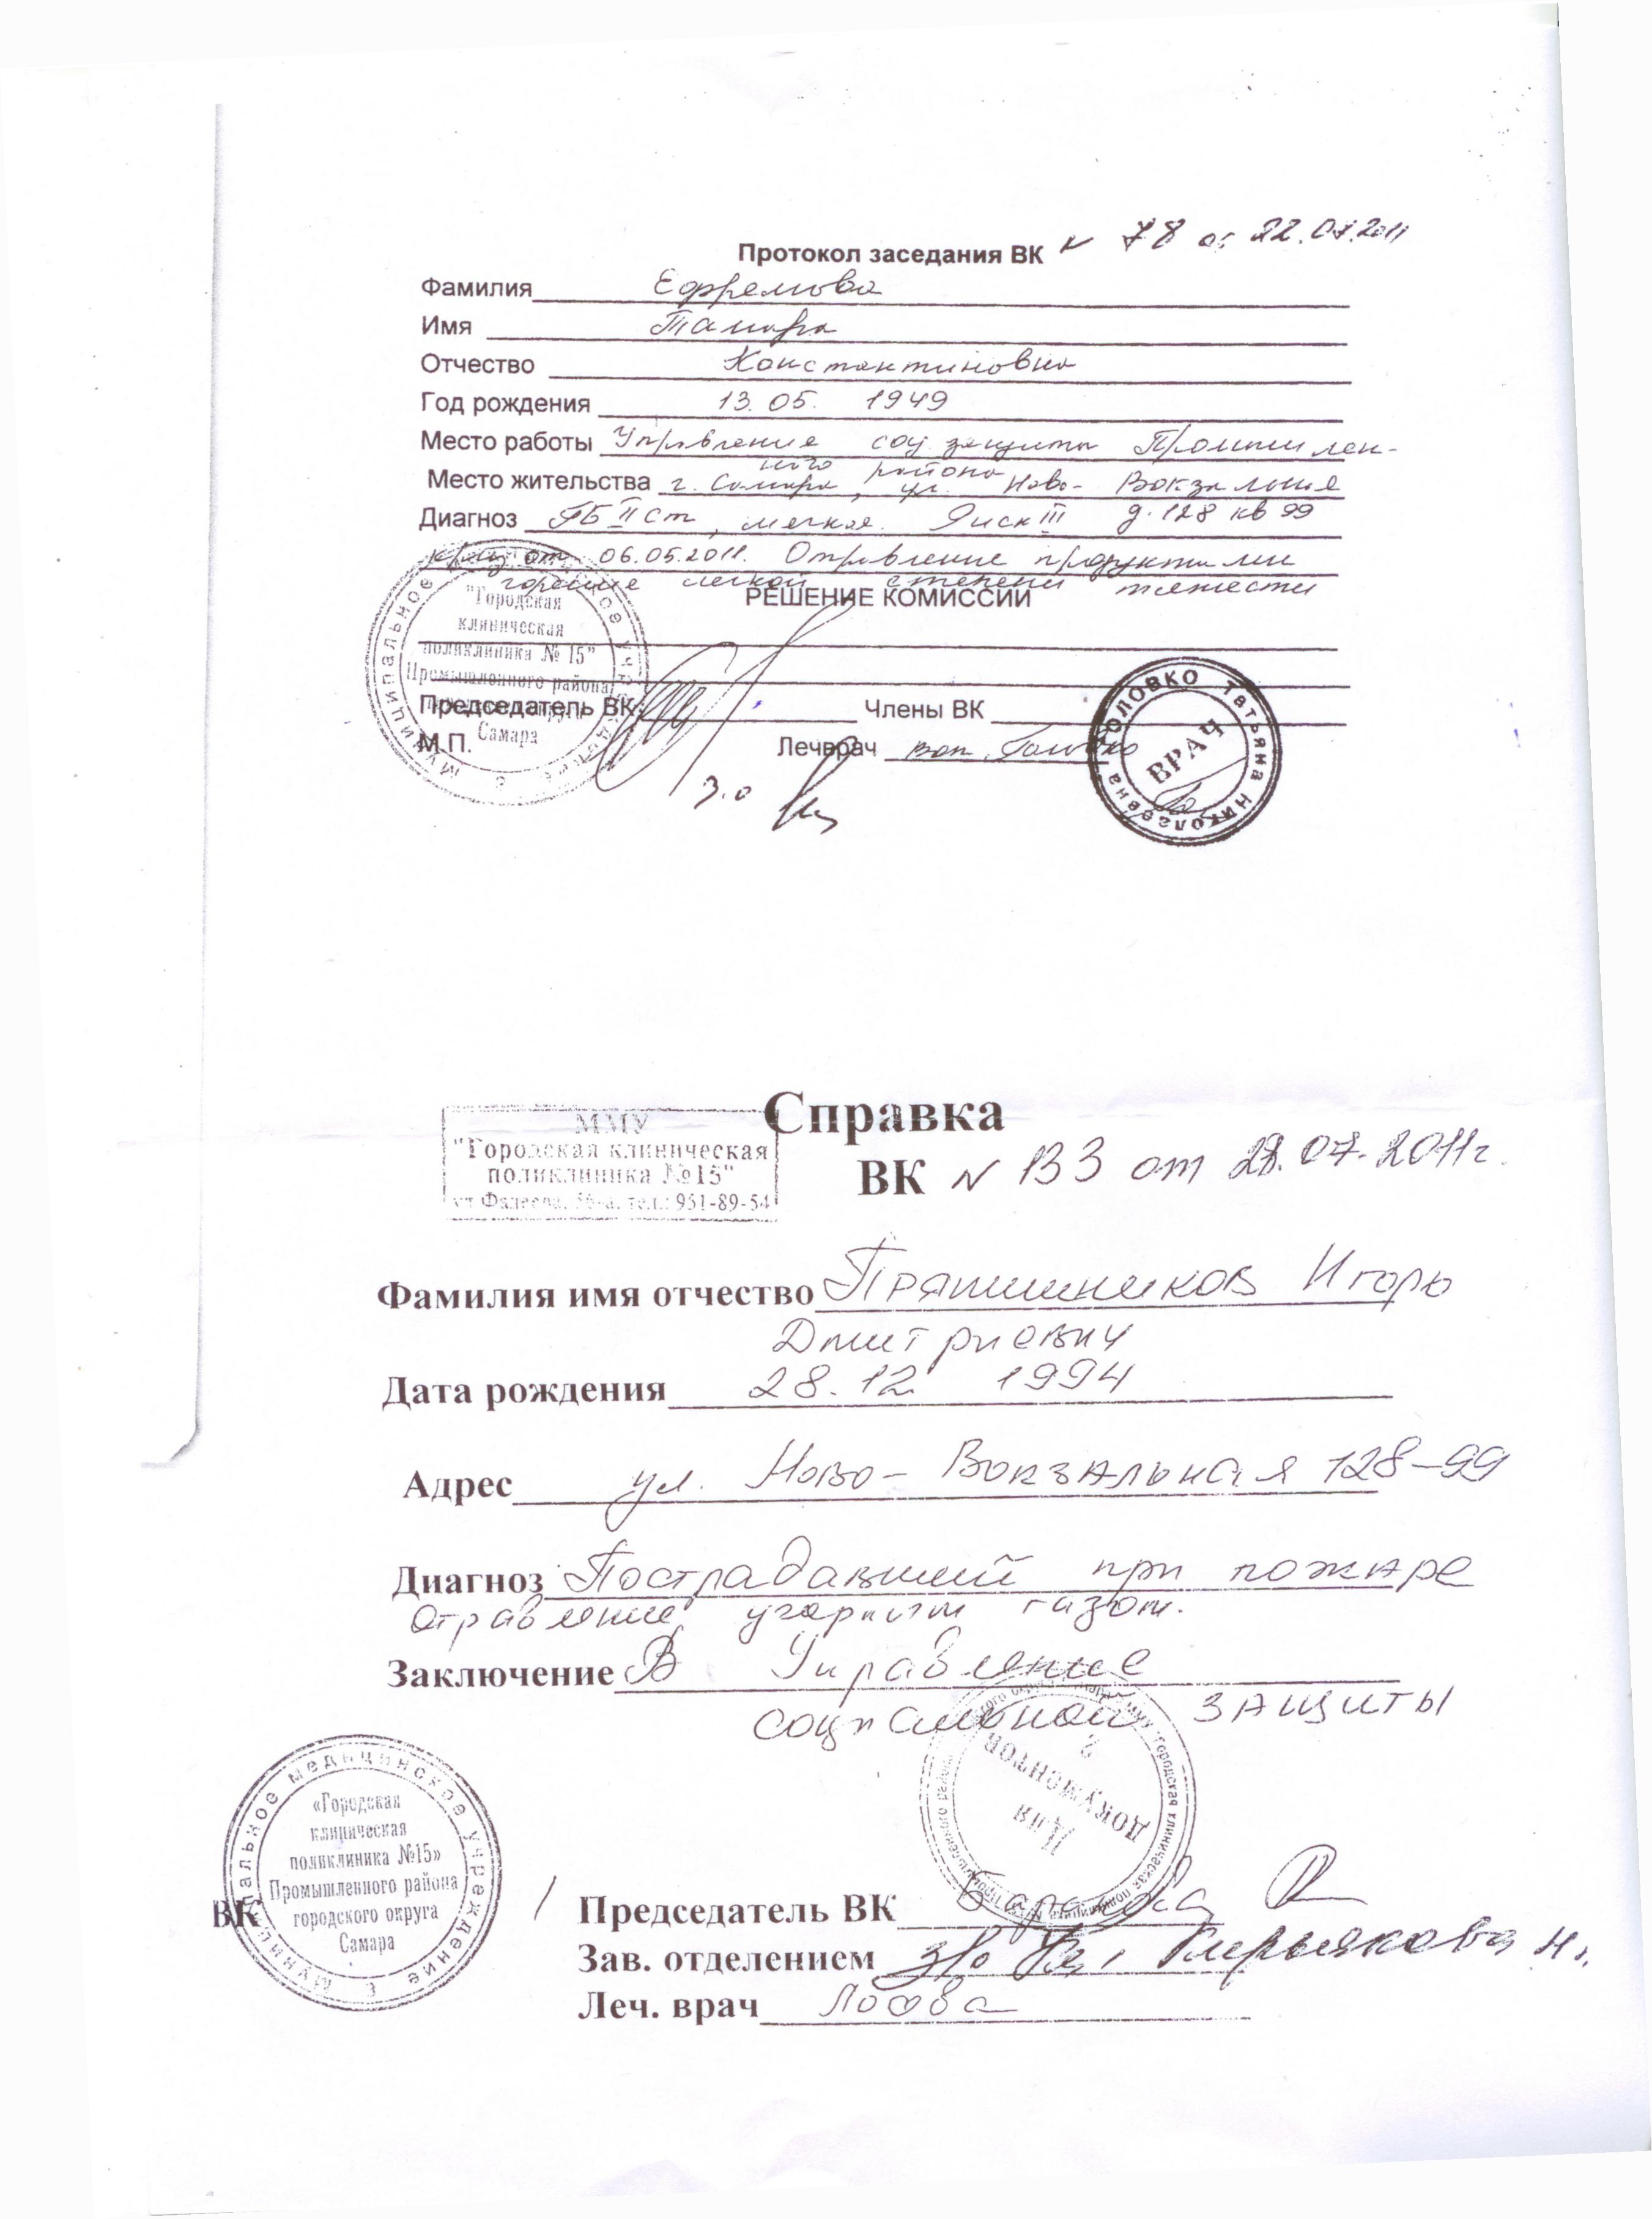 Протокол заседания ВК № 78 от 22.07.2011
Фамилия Ефремова
Имя Тамара
Отчество Константиновна
Год рождения 13.05. 1949
Место работы Управление соц. защиты Промышлен-
ного района
Место жительства г. Самара, ул. Ново-Вокзальная
Диагноз ГБ II ст, мягкая. Риск III д. 128 кв 99
криз от 06.05.2011. Отравление продуктами
горения легкой степени тяжести
РЕШЕНИЕ КОМИССИИ
Муниципальное
"Городская
клиническая
поликлиника № 15"
Промышленного района
Самара
Председатель ВК
Члены ВК
М.П.
Лечврач Головко
З.о
ГОЛОВКО Татьяна Николаевна
ВРАЧ
Справка
ММУ
"Городская клиническая
поликлиника №15"
ул Фадеева, 56-а, тел.: 951-89-54
ВК № 133 от 28.07.2011г.
Фамилия имя отчество Пряпишников Игорь
Дмитриевич
Дата рождения 28.12 1994
Адрес ул. Ново-Вокзальная 128-99
Диагноз Пострадавший при пожаре
Отравление угарным газом.
Заключение В Управление
социальной защиты
Для
документов
2
Муниципальное медицинское учреждение
«Городская
клиническая
поликлиника №15»
Промышленного района
городского округа
Самара
ВК
Председатель ВК
Зав. отделением з/о
Леч. врач